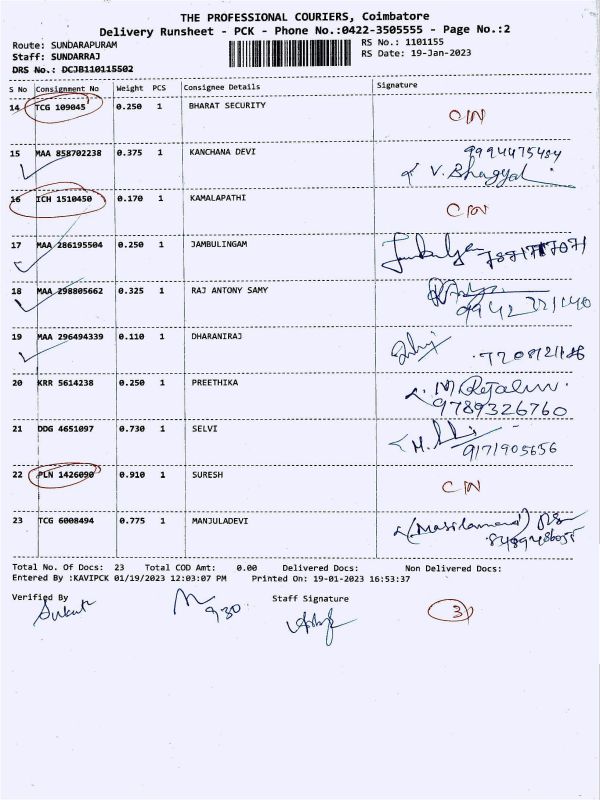 THE PROFESSIONAL COURIERS, Coimbatore
Delivery Runsheet - PCK - Phone No.:0422-3505555 - Page No.:2
Route: SUNDARAPURAM RS No.: 1101155
Staff: SUNDARRAJ RS Date: 19-Jan-2023
DRS No.: DCJB110115502
S No Consignment No Weight PCS Consignee Details Signature
14 TCG 109045 0.250 1 BHARAT SECURITY C/N
15 MAA 858702238 0.375 1 KANCHANA DEVI 9994475484
V. Bhagyal
16 ICH 1510450 0.170 1 KAMALAPATHI C/N
17 MAA 286195504 0.250 1 JAMBULINGAM
18 MAA 298805662 0.325 1 RAJ ANTONY SAMY
19 MAA 296494339 0.110 1 DHARANIRAJ
20 KRR 5614238 0.250 1 PREETHIKA
9789326760
21 DDG 4651097 0.730 1 SELVI
9171905656
22 PLN 1426090 0.910 1 SURESH C/N
23 TCG 6008494 0.775 1 MANJULADEVI
Total No. Of Docs: 23 Total COD Amt: 0.00 Delivered Docs: Non Delivered Docs:
Entered By :KAVIPCK 01/19/2023 12:03:07 PM Printed On: 19-01-2023 16:53:37
Verified By Staff Signature
930
3